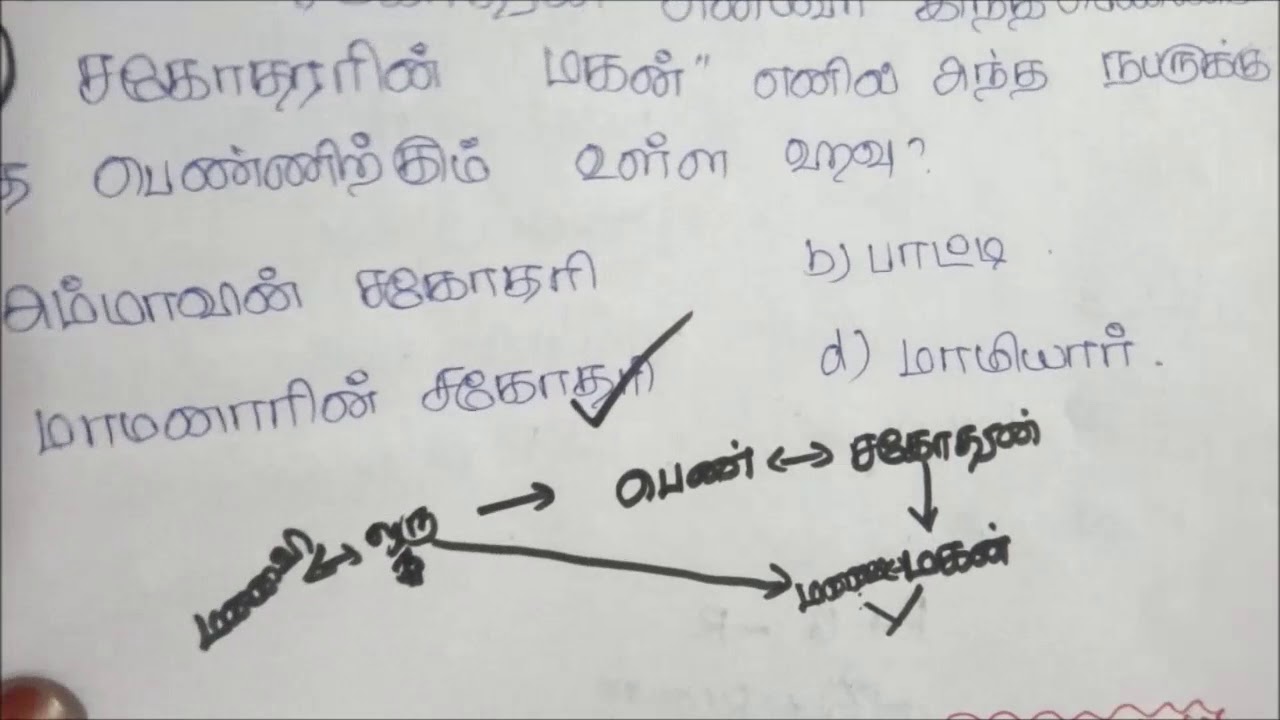 சகோதரரின் மகன்" எனில் அந்த நபருக்கு
த பெண்ணிற்கும் உள்ள உறவு?
அம்மாவின் சகோதரி b) பாட்டி
மாமனாரின் சகோதரி d) மாமியார்.
பெண் ↔ சகோதரன்
மனைவி ↔ ஒரு →
மகன்